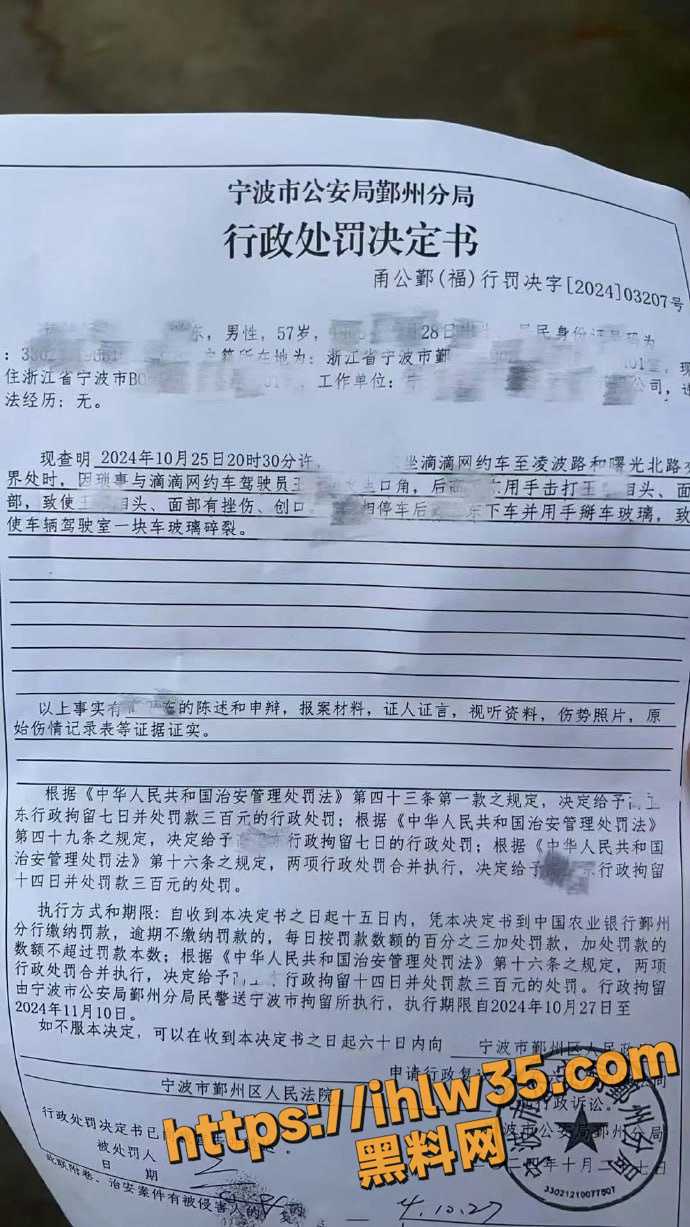 宁波市公安局鄞州分局
行政处罚决定书
甬公鄞(福)行罚决字[2024]03207号
东，男性，57岁， 28日 居民身份证号码为
户籍所在地为：浙江省宁波市鄞 现
住浙江省宁波市 工作单位： 公司，违
法经历：无。
现查明 2024年10月25日20时30分许， 坐滴滴网约车至凌波路和曙光北路交
界处时，因琐事与滴滴网约车驾驶员王 口角，后 东用手击打王 相头、面
部，致使王 相头、面部有挫伤、创口 相停车后 东下车并用手掰车玻璃，致
使车辆驾驶室一块车玻璃碎裂。
以上事实有 的陈述和申辩，报案材料，证人证言，视听资料，伤势照片，原
始伤情记录表等证据证实。
根据《中华人民共和国治安管理处罚法》第四十三条第一款之规定，决定给予
东行政拘留七日并处罚款三百元的行政处罚；根据《中华人民共和国治安管理处罚法》
第四十九条之规定，决定给予 行政拘留七日的行政处罚；根据《中华人民共和国
治安管理处罚法》第十六条之规定，两项行政处罚合并执行，决定给予 东行政拘留
十四日并处罚款三百元的处罚。
执行方式和期限：自收到本决定书之日起十五日内，凭本决定书到中国农业银行鄞州
分行缴纳罚款，逾期不缴纳罚款的，每日按罚款数额的百分之三加处罚款，加处罚款的
数额不超过罚款本数；根据《中华人民共和国治安管理处罚法》第十六条之规定，两项
行政处罚合并执行，决定给予 行政拘留十四日并处罚款三百元的处罚。行政拘留
由宁波市公安局鄞州分局民警送宁波市拘留所执行，执行期限自2024年10月27日至
2024年11月10日。
如不服本决定，可以在收到本决定书之日起六十日内向 宁波市鄞州区人民政
申请行政复
宁波市鄞州区人民法院 行政诉讼。
行政处罚决定书已
https://ihlw35.com
黑料网
被处罚人 波市公安局鄞州分局
日 期 二四年十月二 七日
此联附卷。治安案件有被侵害人的
4.10.27
33021210077507